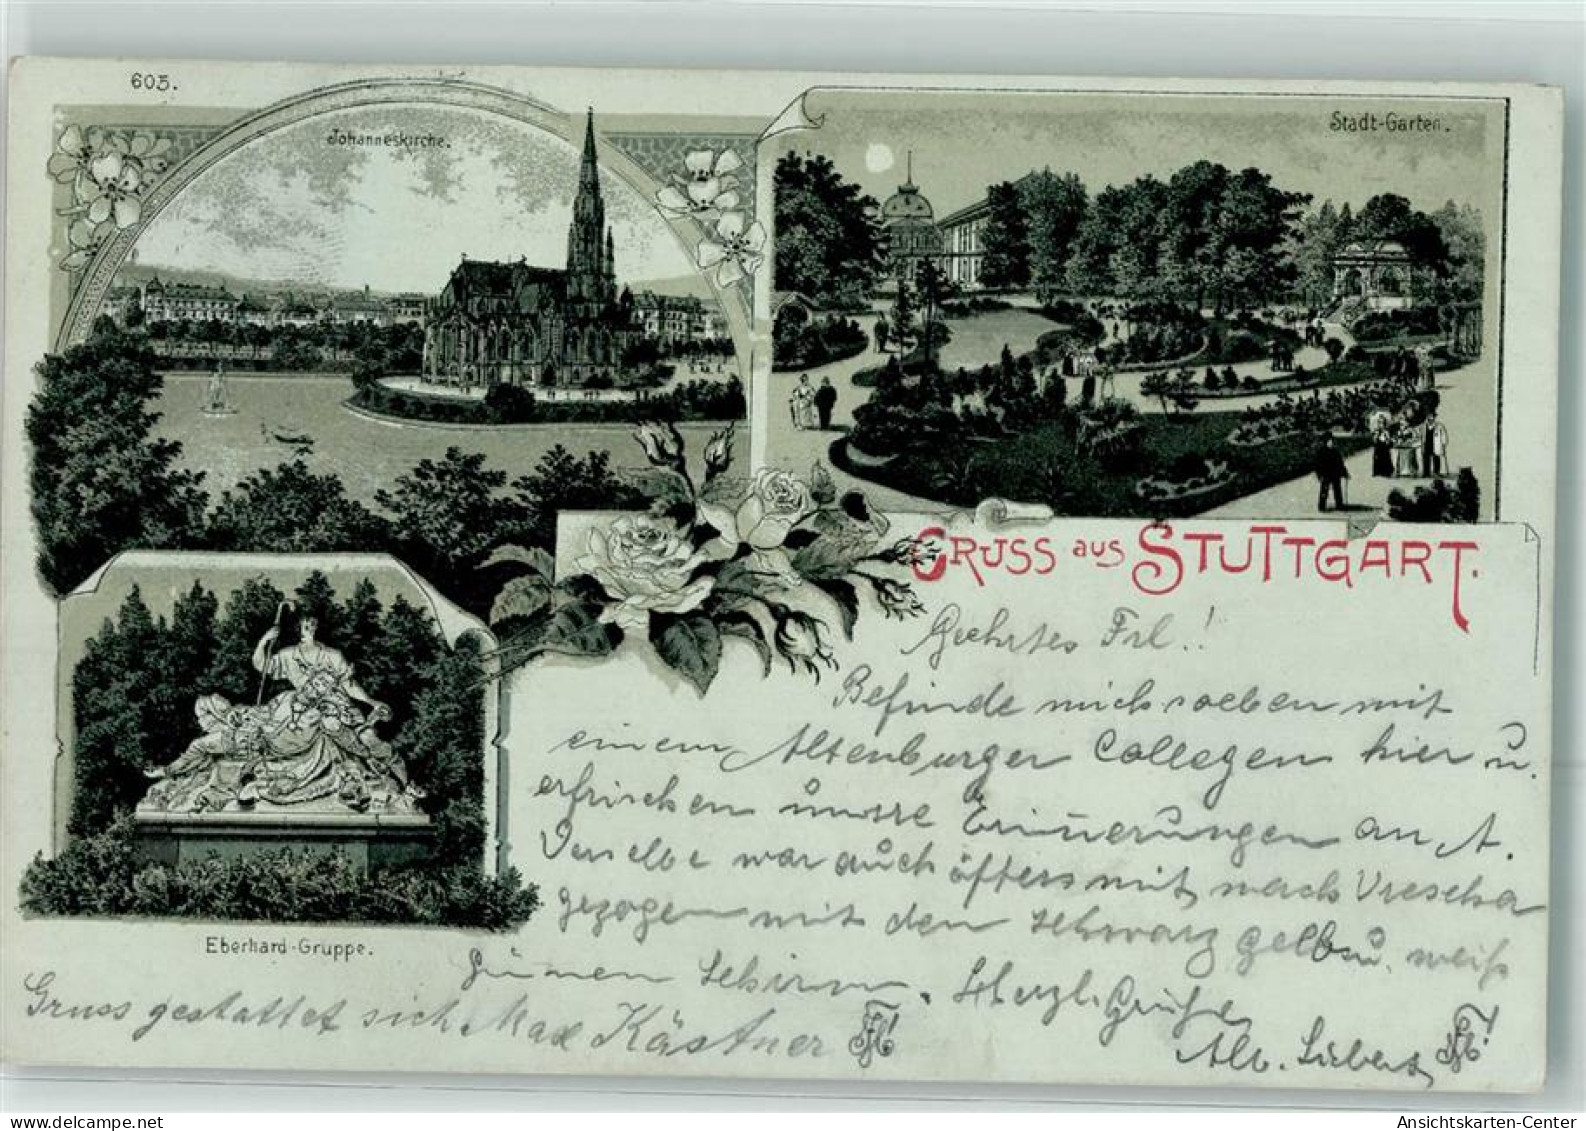 603.
Johanneskirche.
Stadt-Garten.
GRUSS aus STUTTGART.
Geehrtes Frl.!
Befinde mich soeben mit
einem Altenburger Collegen hier u.
erfrischen unsre Erinnerungen an A.
Derselbe war auch öfters mit nach
gezogen mit den schwarz gelb u. weiß
grünen Schirm. Herzl. Grüße
Alb.
Eberhard-Gruppe.
Gruss gestattet sich Max Kästner
delcampe.net
Ansichtskarten-Center